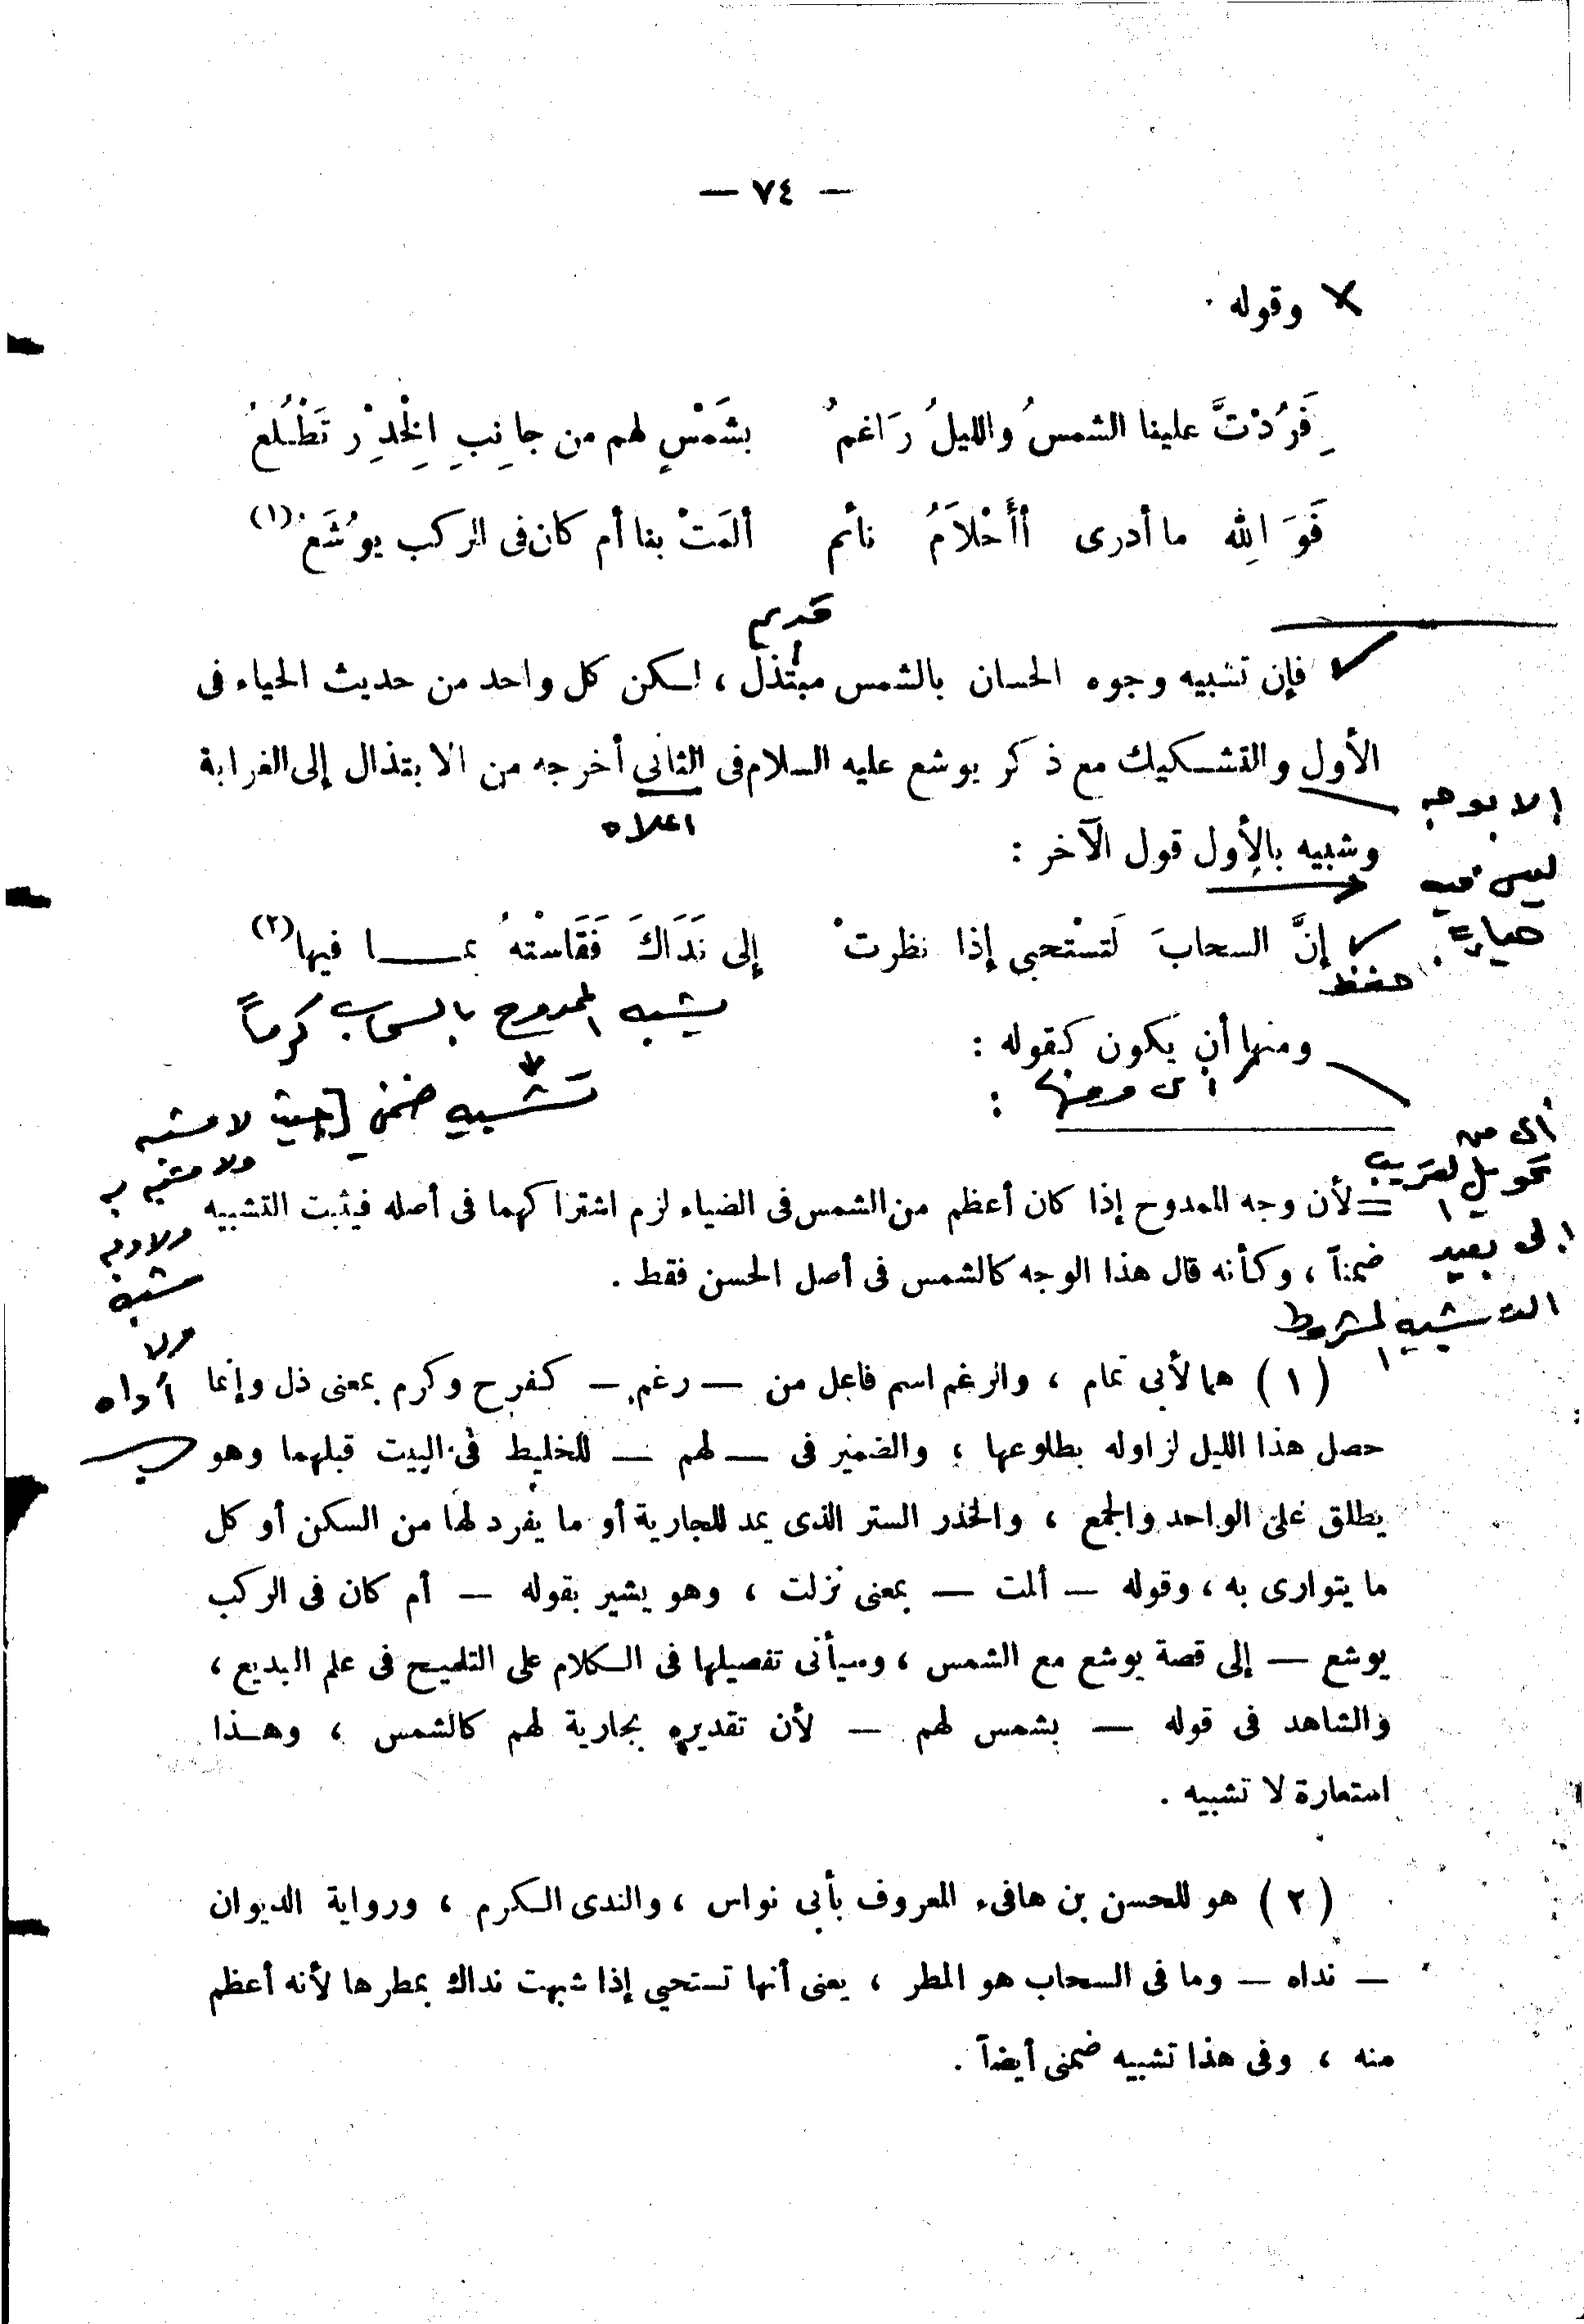 — ٧٤ —
وقوله .
فَرُدْتَّ علينا الشمسُ والليلُ رَاغمُ بشَمْسٍ لهم من جانِبِ الِخْدِرْ تَطْـلُعُ
فَوَ اللِه ما أدرى أأَحْلاَمُ نائم ألمَتْ بنا أم كان فى الركب يوُشَعُ (١)
قديم
فإن تشبيه وجوه الحسان بالشمس مبتذل ، لـكن كل واحد من حديث الحياء فى
الأول والتشـكيك مع ذكر يوشع عليه السلام فى الثانى أخرجه من الابتذال إلى الغرابة
إلا بوجه
اعلاه
وشبيه بالأول قول الآخر :
ليس فيه
حياء
إنَّ السحابَ لَتستْحيى إذا نظرتْ إلى نَدَاكَ فَقَاسْتهُ بمـــا فيها (٢)
حفظ
يشبه الممدوح بالسحاب كرماً
ومنها أن يكون كقوله :
أى ومنها :
تشبيه ضمني [حيث لا مشبه
ولا مشبه به
ولا وجه
شبه
ولا
أداه
أى من
تحويل لقريب
إلى بعيد
التشبيه المشروط
= لأن وجه الممدوح إذا كان أعظم من الشمس فى الضياء لزم اشتراكهما فى أصله فيثبت التشبيه
ضمناً ، وكأنه قال هذا الوجه كالشمس فى أصل الحسن فقط .
(١) هما لأبى تمام ، والرغم اسم فاعل من — رغم — كفرح وكرم بمعنى ذل وإنما
حصل هذا الليل لزاوله بطلوعها ؛ والضمير فى — لهم — للخليط فى البيت قبلهما وهو
يطلق على الواحد والجمع ، والخدر الستر الذى يمد للجارية أو ما يفرد لها من السكن أو كل
ما يتوارى به ، وقوله — ألمت — بمعنى نزلت ، وهو يشير بقوله — أم كان فى الركب
يوشع — إلى قصة يوشع مع الشمس ، وسيأتى تفصيلها فى الـكلام على التلميح فى علم البديع ،
والشاهد فى قوله — بشمس لهم — لأن تقديره بجارية لهم كالشمس ، وهـذا
استعارة لا تشبيه .
(٢) هو للحسن بن هافىء المعروف بأبى نواس ، والندى الـكرم ، ورواية الديوان
— نداه — وما فى السحاب هو المطر ، يعنى أنها تستحيى إذا شبهت نداك بمطرها لأنه أعظم
منه ، وفى هذا تشبيه ضمنى أيضاً .